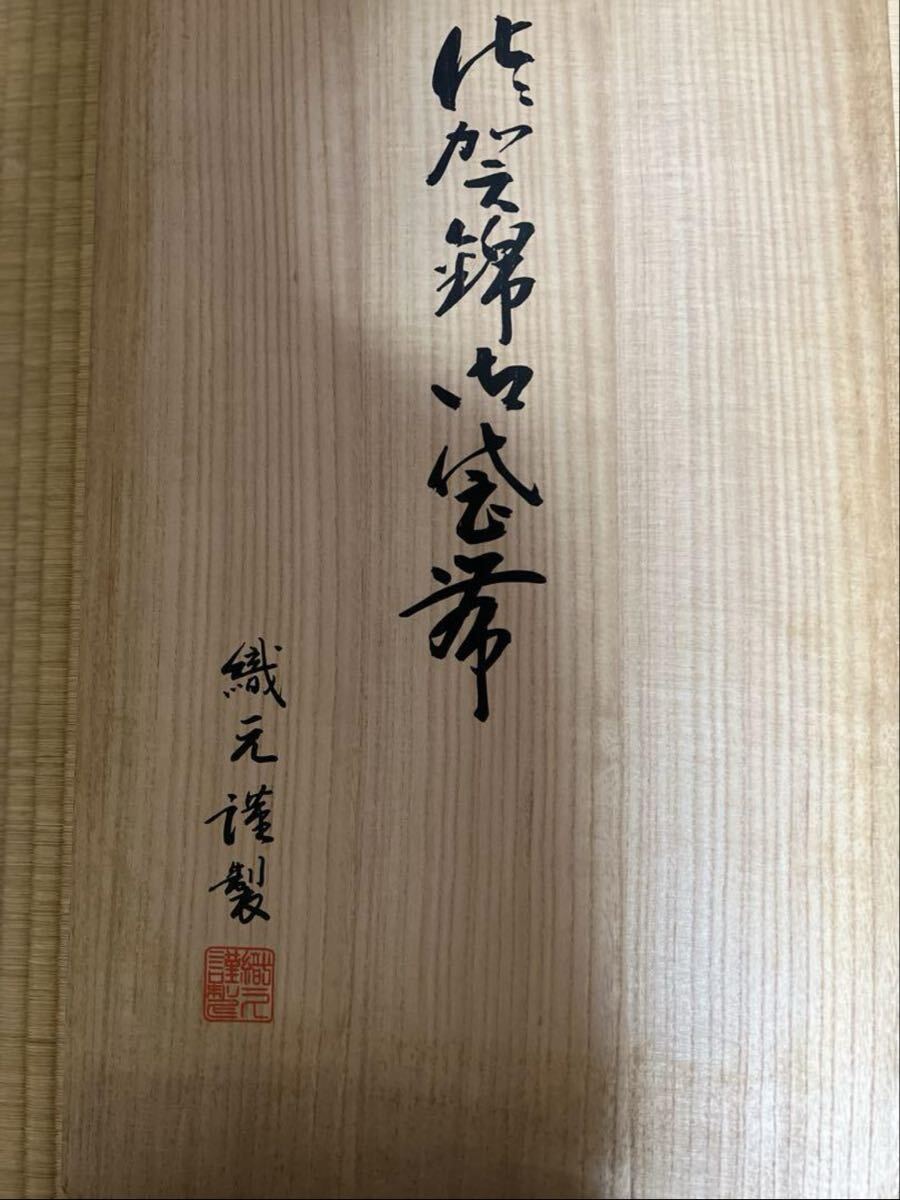 佐賀錦御袋帯
織元謹製
織元
謹製